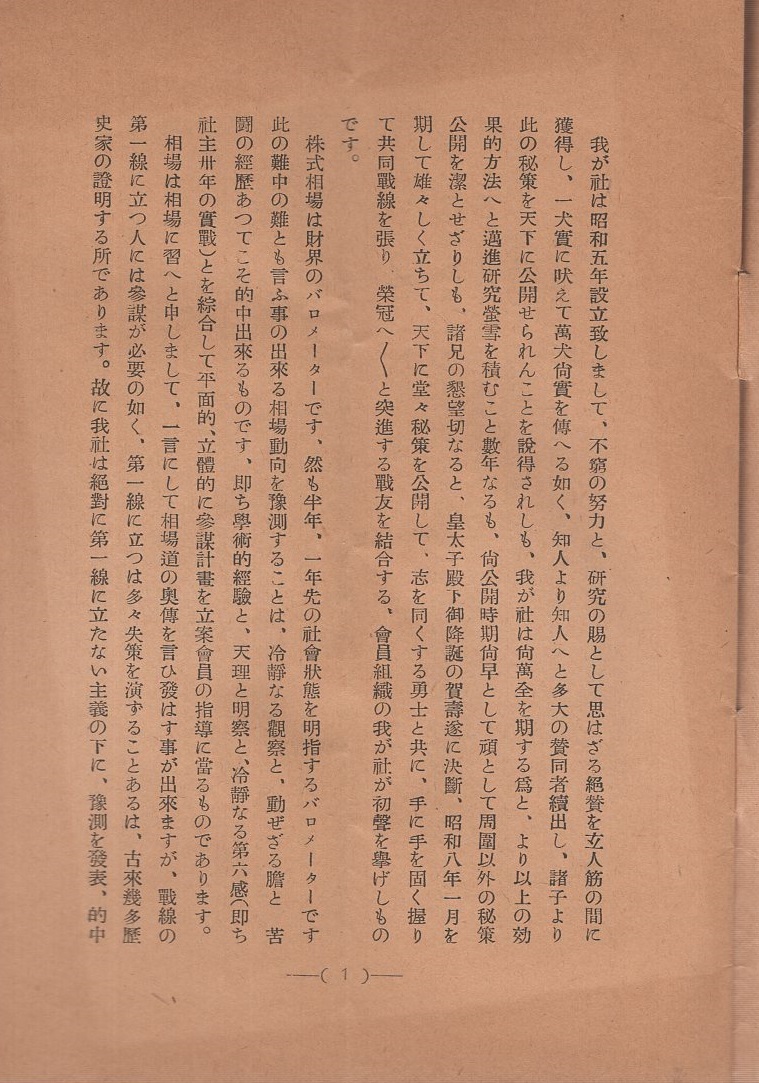 我が社は昭和五年設立致しまして、不窮の努力と、研究の賜として思はざる絶賛を玄人筋の間に
獲得し、一犬實に吠えて萬犬尙實を傳へる如く、知人より知人へと多大の賛同者續出し、諸子より
此の秘策を天下に公開せられんことを說得されしも、我が社は尙萬全を期する爲と、より以上の効
果的方法へと邁進硏究螢雪を積むこと數年なるも、尙公開時期尙早として頑として周圍以外の秘策
公開を潔とせざりしも、諸兄の懇望切なると、皇太子殿下御降誕の賀壽遂に決斷、昭和八年一月を
期して雄々しく立ちて、天下に堂々秘策を公開して、志を同くする勇士と共に、手に手を固く握り
て共同戰線を張り、榮冠へ〱と突進する戰友を結合する、會員組織の我が社が初聲を擧げしもの
です。
株式相場は財界のバロメーターです、然も半年、一年先の社會狀態を明指するバロメーターです
此の難中の難とも言ふ事の出來る相場動向を豫測することは、冷靜なる觀察と、動ぜざる膽と 苦
鬪の經歷あつてこそ的中出來るものです、卽ち學術的經驗と、天理と明察と、冷靜なる第六感(卽ち
社主卅年の實戰)とを綜合して平面的、立體的に參謀計畫を立案會員の指導に當るものであります。
相場は相場に習へと申しまして、一言にして相場道の奧傳を言ひ發はす事が出來ますが、戰線の
第一線に立つ人には參謀が必要の如く、第一線に立つは多々失策を演ずることあるは、古來幾多歷
史家の證明する所であります。故に我社は絕對に第一線に立たない主義の下に、豫測を發表、的中
―( 1 )―